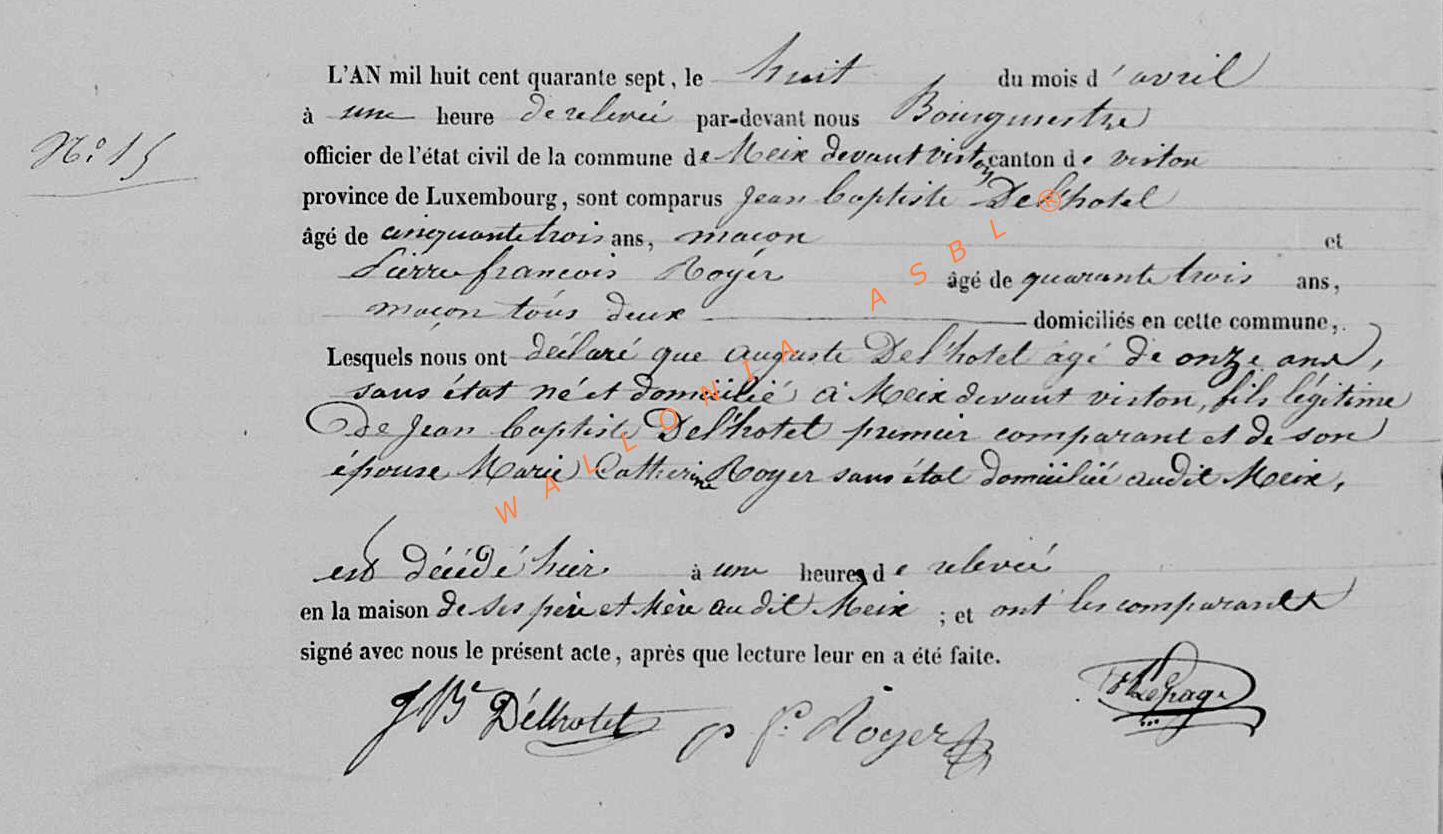 N.o 15
L'AN mil huit cent quarante sept, le huit du mois d'avril
à une heure de relevée par-devant nous Bourgmestre
officier de l'état civil de la commune de Meix devant virton canton de virton
province de Luxembourg, sont comparus Jean Baptiste Delhotel
âgé de cinquante trois ans, maçon et
Pierre françois Royer âgé de quarante trois ans,
maçon tous deux domiciliés en cette commune,
Lesquels nous ont déclaré que auguste Del'hotel âgé de onze ans,
sans état né et domicilié à Meix devant virton, fils légitime
De Jean Baptiste Del'hotel premier comparant et de son
épouse Marie Catherine Royer sans état domiciliée audit Meix,
est décédé hier à une heure de relevée
en la maison de ses père et Mère au dit Meix ; et ont les comparants
signé avec nous le présent acte, après que lecture leur en a été faite.
JBte Délhotel p f. Royer Lepage
WALLONIA ASBL ®